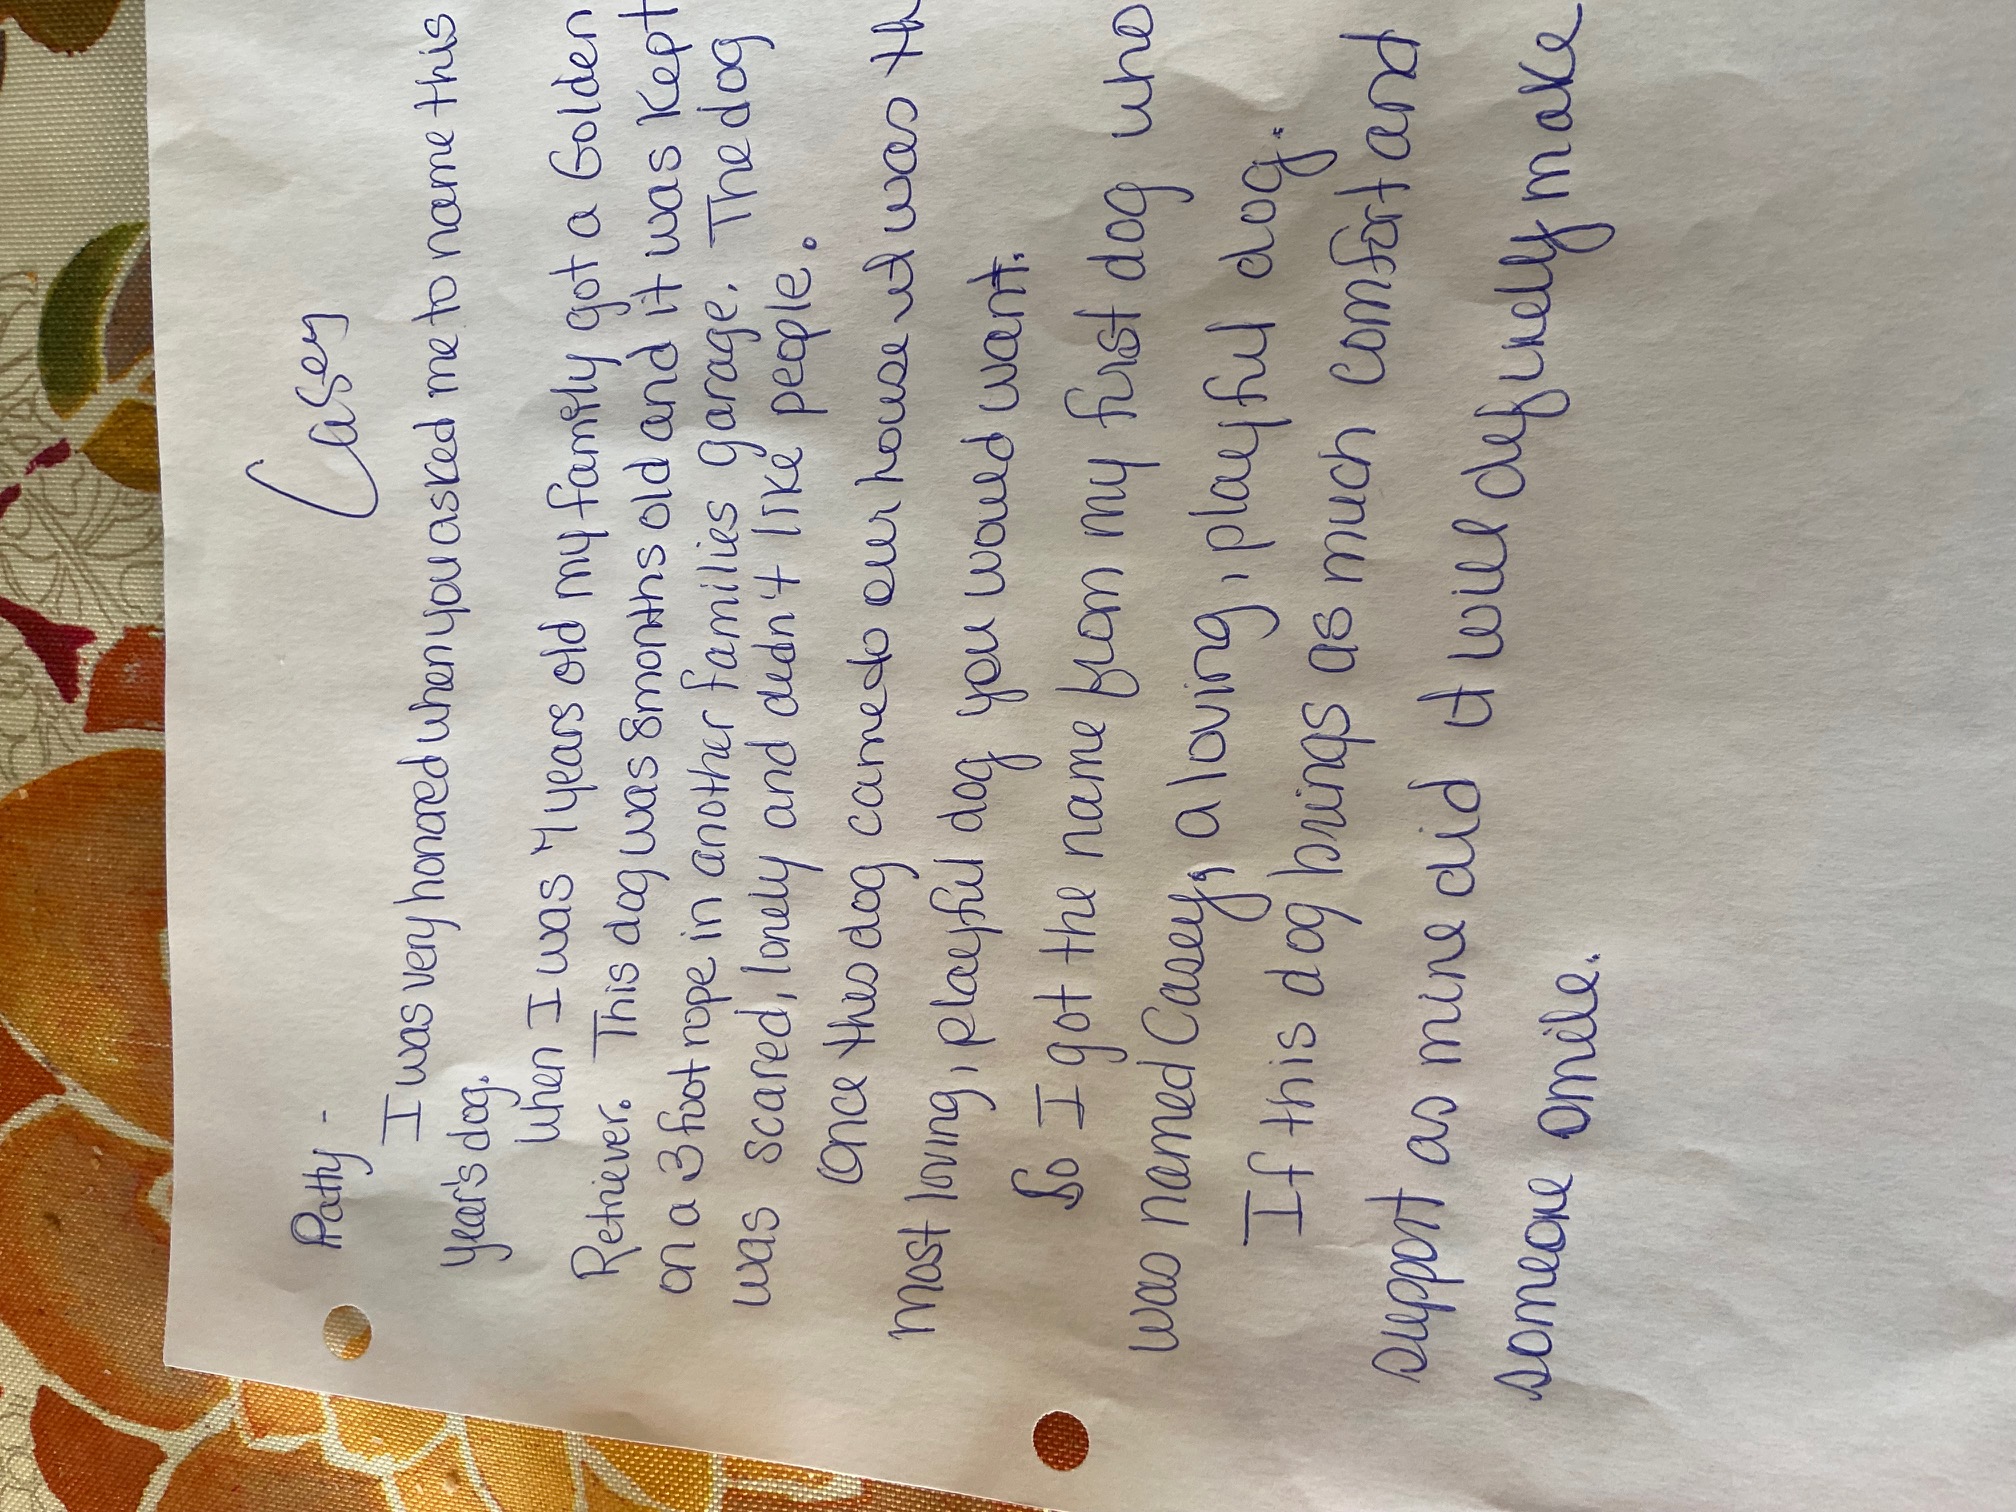 Casey
Patty -
I was very honored when you asked me to name this
year's dog.
When I was 4 years old my family got a Golden
Retriever. This dog was 8 months old and it was Kept
on a 3 foot rope in another families garage. The dog
was scared, lonely and didn't like people.
Once this dog came to our house it was th
most loving, playful dog you would want.
So I got the name from my first dog who
was named Casey, a loving, playful dog.
If this dog brings as much comfort and
support as mine did it will definely make
someone smile.